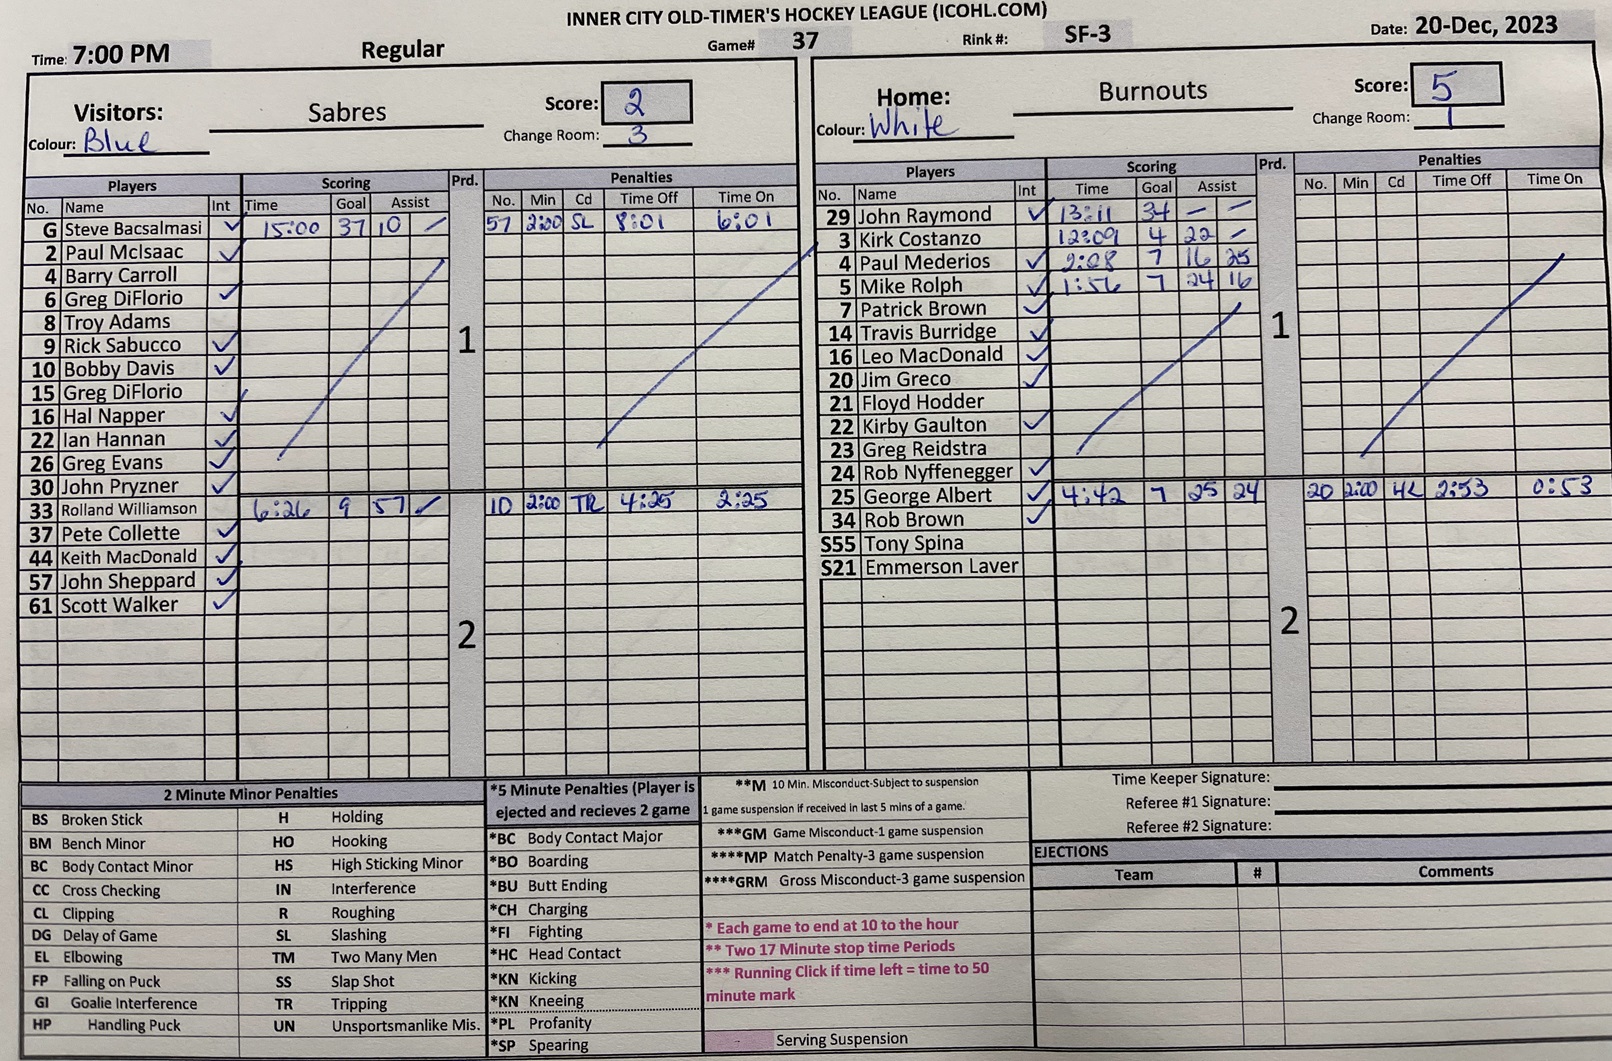 INNER CITY OLD-TIMER'S HOCKEY LEAGUE (ICOHL.COM)
Time: 7:00 PM Regular Game# 37 Rink #: SF-3 Date: 20-Dec, 2023
Visitors: Sabres Score: 2
Colour: Blue Change Room: 3
Players Scoring Prd. Penalties
No. Name Int Time Goal Assist No. Min Cd Time Off Time On
G Steve Bacsalmasi ✓ 15:00 37 10 – 57 2:00 SL 8:01 6:01
2 Paul McIsaac ✓
4 Barry Carroll
6 Greg DiFlorio ✓
8 Troy Adams
9 Rick Sabucco ✓ 1
10 Bobby Davis ✓
15 Greg DiFlorio
16 Hal Napper ✓
22 Ian Hannan ✓
26 Greg Evans ✓
30 John Pryzner ✓
33 Rolland Williamson 6:26 9 57 – 10 2:00 TR 4:25 2:25
37 Pete Collette ✓
44 Keith MacDonald ✓
57 John Sheppard ✓
61 Scott Walker ✓
2
Home: Burnouts Score: 5
Colour: White Change Room: 1
Players Scoring Prd. Penalties
No. Name Int Time Goal Assist No. Min Cd Time Off Time On
29 John Raymond ✓ 13:11 34 – –
3 Kirk Costanzo 12:09 4 22 –
4 Paul Mederios ✓ 2:08 7 16 25
5 Mike Rolph ✓ 1:56 7 24 16
7 Patrick Brown ✓
14 Travis Burridge ✓ 1
16 Leo MacDonald ✓
20 Jim Greco ✓
21 Floyd Hodder
22 Kirby Gaulton ✓
23 Greg Reidstra
24 Rob Nyffenegger ✓
25 George Albert ✓ 4:42 7 25 24 20 2:00 2:53 0:53
34 Rob Brown ✓
S55 Tony Spina
S21 Emmerson Laver
2
2 Minute Minor Penalties
BS Broken Stick H Holding
BM Bench Minor HO Hooking
BC Body Contact Minor HS High Sticking Minor
CC Cross Checking IN Interference
CL Clipping R Roughing
DG Delay of Game SL Slashing
EL Elbowing TM Two Many Men
FP Falling on Puck SS Slap Shot
GI Goalie Interference TR Tripping
HP Handling Puck UN Unsportsmanlike Mis.
*5 Minute Penalties (Player is
ejected and recieves 2 game
*BC Body Contact Major
*BO Boarding
*BU Butt Ending
*CH Charging
*FI Fighting
*HC Head Contact
*KN Kicking
*KN Kneeing
*PL Profanity
*SP Spearing
**M 10 Min. Misconduct-Subject to suspension
1 game suspension if received in last 5 mins of a game.
***GM Game Misconduct-1 game suspension
****MP Match Penalty-3 game suspension
****GRM Gross Misconduct-3 game suspension
* Each game to end at 10 to the hour
** Two 17 Minute stop time Periods
*** Running Click if time left = time to 50
minute mark
Serving Suspension
Time Keeper Signature:
Referee #1 Signature:
Referee #2 Signature:
EJECTIONS
Team # Comments